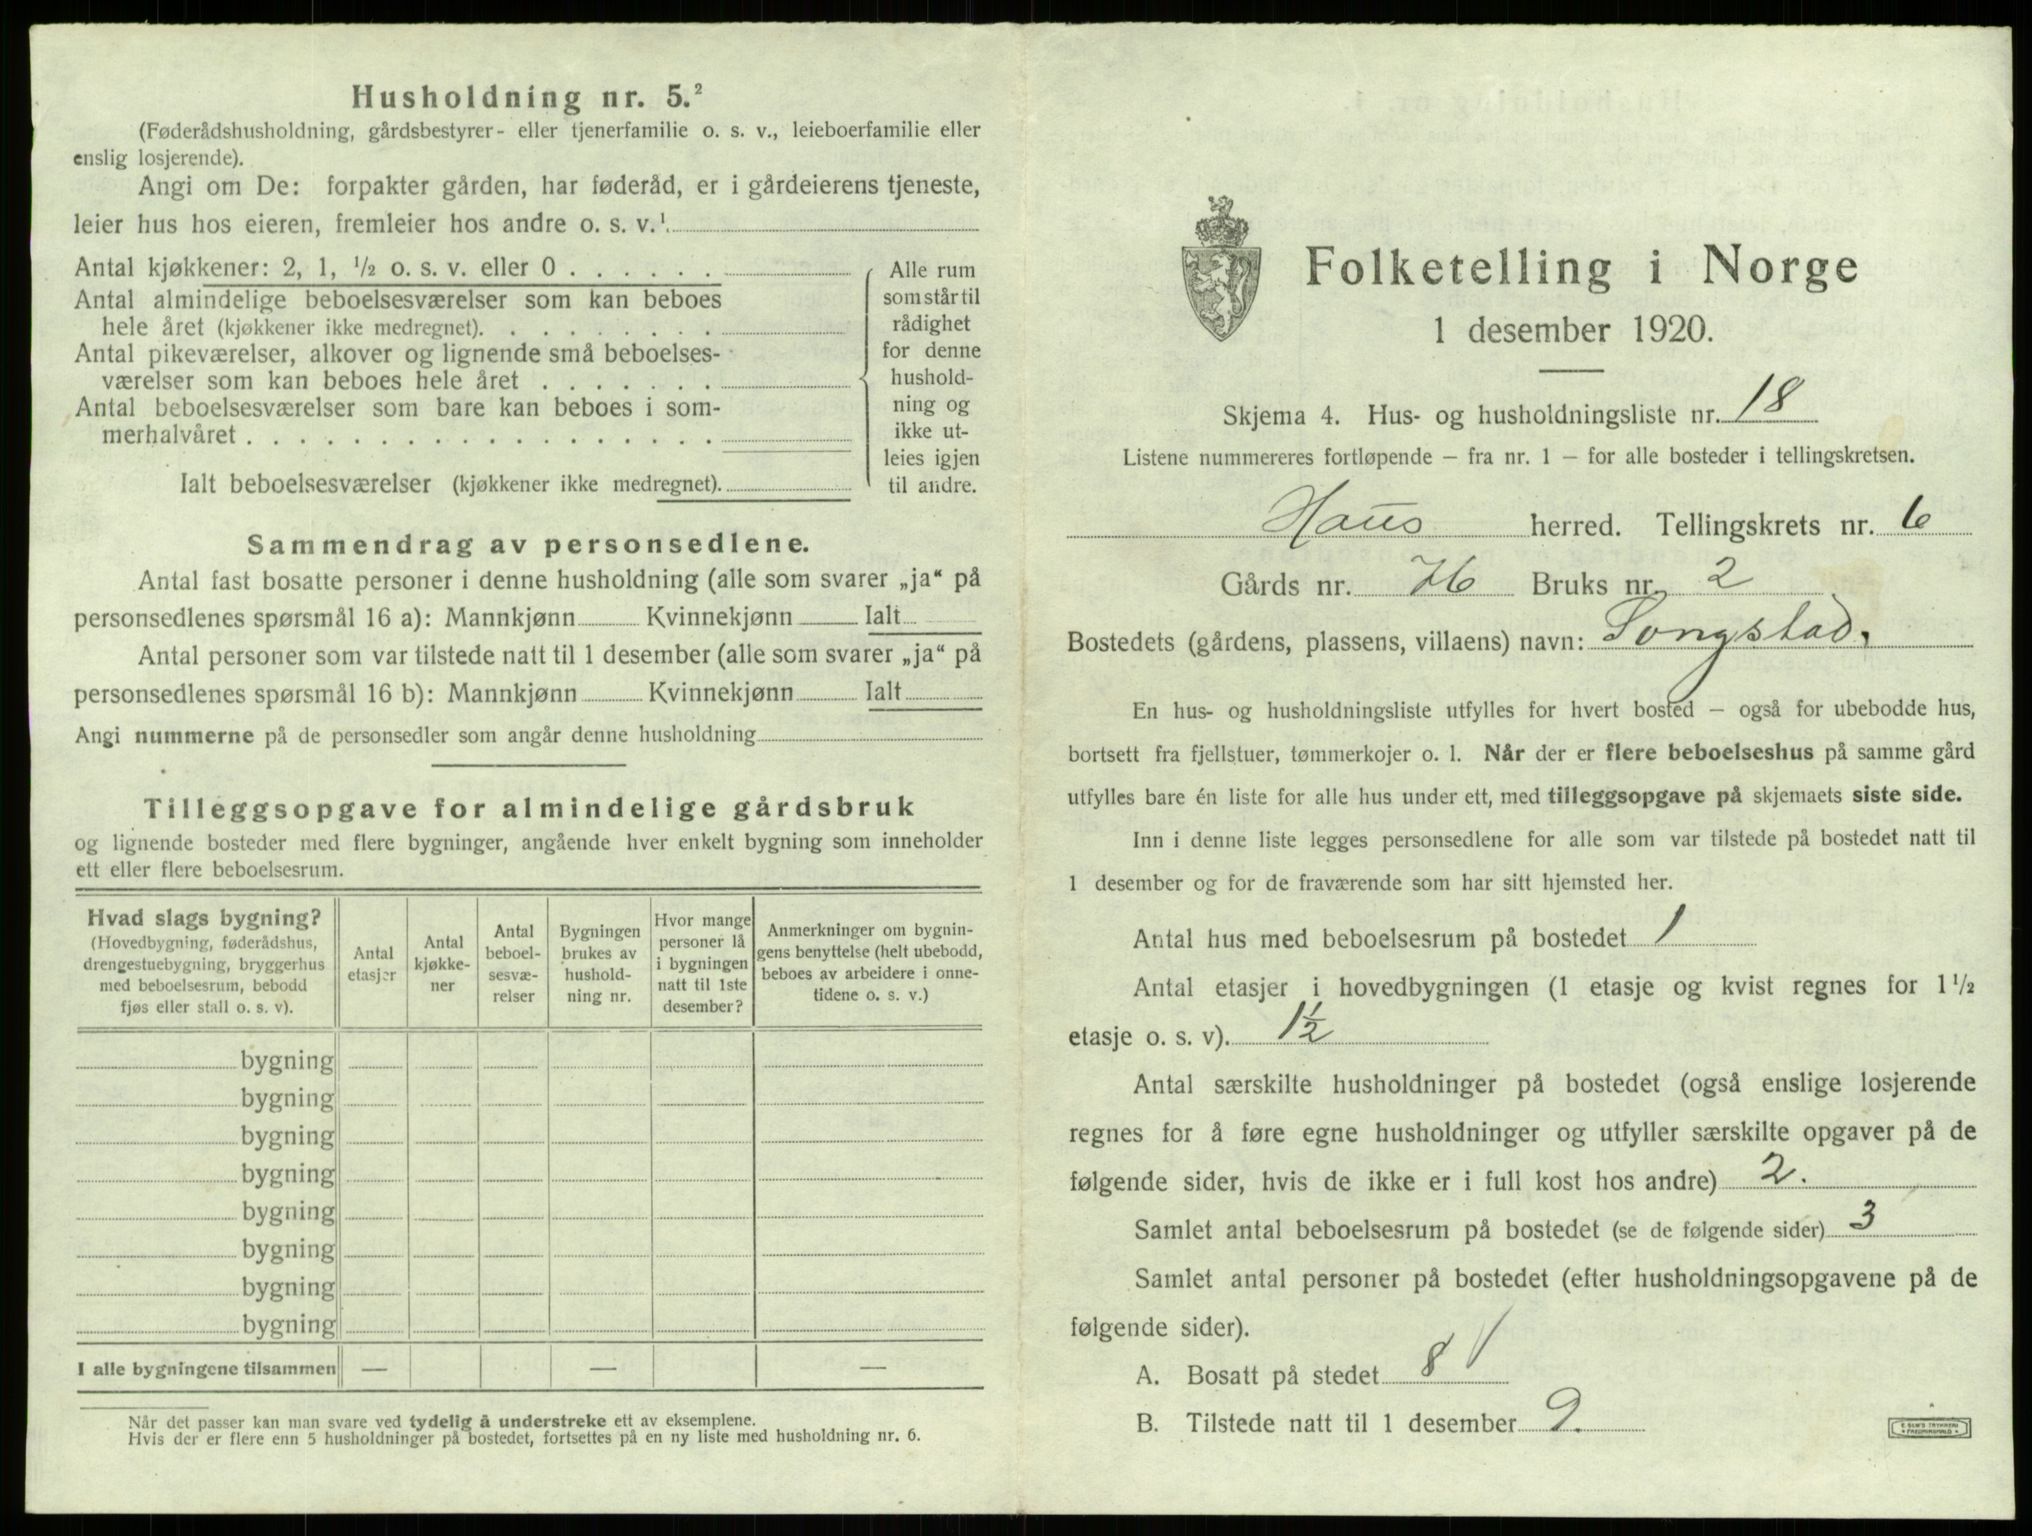 Husholdning nr. 5.²
(Føderådshusholdning, gårdsbestyrer- eller tjenerfamilie o. s. v., leieboerfamilie eller
enslig losjerende).
Angi om De: forpakter gården, har føderåd, er i gårdeierens tjeneste,
leier hus hos eieren, fremleier hos andre o. s. v.¹
Antal kjøkkener: 2, 1, ½ o. s. v. eller 0 . . . . . .
Antal almindelige beboelsesværelser som kan beboes
hele året (kjøkkener ikke medregnet). . . . . . . . .
Antal pikeværelser, alkover og lignende små beboelses-
værelser som kan beboes hele året . . . . . . .
Antal beboelsesværelser som bare kan beboes i som-
merhalvåret . . . . . . . . . . . . . . . . . .
Ialt beboelsesværelser (kjøkkener ikke medregnet).
Alle rum
som står til
rådighet
for denne
hushold-
ning og
ikke ut-
leies igjen
til andre.
Sammendrag av personsedlene.
Antal fast bosatte personer i denne husholdning (alle som svarer „ja“ på
personsedlenes spørsmål 16 a): Mannkjønn Kvinnekjønn Ialt
Antal personer som var tilstede natt til 1 desember (alle som svarer „ja“ på
personsedlenes spørsmål 16 b): Mannkjønn Kvinnekjønn Ialt
Angi nummerne på de personsedler som angår denne husholdning
Tilleggsopgave for almindelige gårdsbruk
og lignende bosteder med flere bygninger, angående hver enkelt bygning som inneholder
ett eller flere beboelsesrum.
Hvad slags bygning?
(Hovedbygning, føderådshus,
drengestuebygning, bryggerhus
med beboelsesrum, bebodd
fjøs eller stall o. s. v).
Antal
etasjer
Antal
kjøkke-
ner
Antal
beboel-
sesvæ-
relser
Bygningen
brukes av
hushold-
ning nr.
Hvor mange
personer lå
i bygningen
natt til 1ste
desember?
Anmerkninger om bygnin-
gens benyttelse (helt ubebodd,
beboes av arbeidere i onne-
tidene o. s. v.)
bygning
bygning
bygning
bygning
bygning
bygning
bygning
bygning
I alle bygningene tilsammen — — —
Når det passer kan man svare ved tydelig å understreke ett av eksemplene.
Hvis der er flere enn 5 husholdninger på bostedet, fortsettes på en ny liste med husholdning nr. 6.
Folketelling i Norge
1 desember 1920.
Skjema 4. Hus- og husholdningsliste nr. 18
Listene nummereres fortløpende – fra nr. 1 – for alle bosteder i tellingskretsen.
Haus herred. Tellingskrets nr. 6
Gårds nr. 76 Bruks nr. 2
Bostedets (gårdens, plassens, villaens) navn: Songstad,
En hus- og husholdningsliste utfylles for hvert bosted – også for ubebodde hus,
bortsett fra fjellstuer, tømmerkojer o. l. Når der er flere beboelseshus på samme gård
utfylles bare én liste for alle hus under ett, med tilleggsopgave på skjemaets siste side.
Inn i denne liste legges personsedlene for alle som var tilstede på bostedet natt til
1 desember og for de fraværende som har sitt hjemsted her.
Antal hus med beboelsesrum på bostedet 1
Antal etasjer i hovedbygningen (1 etasje og kvist regnes for 1½
etasje o. s. v). 1½
Antal særskilte husholdninger på bostedet (også enslige losjerende
regnes for å føre egne husholdninger og utfyller særskilte opgaver på de
følgende sider, hvis de ikke er i full kost hos andre) 2.
Samlet antal beboelsesrum på bostedet (se de følgende sider) 3
Samlet antal personer på bostedet (efter husholdningsopgavene på de
følgende sider).
A. Bosatt på stedet 8
B. Tilstede natt til 1 desember 9.